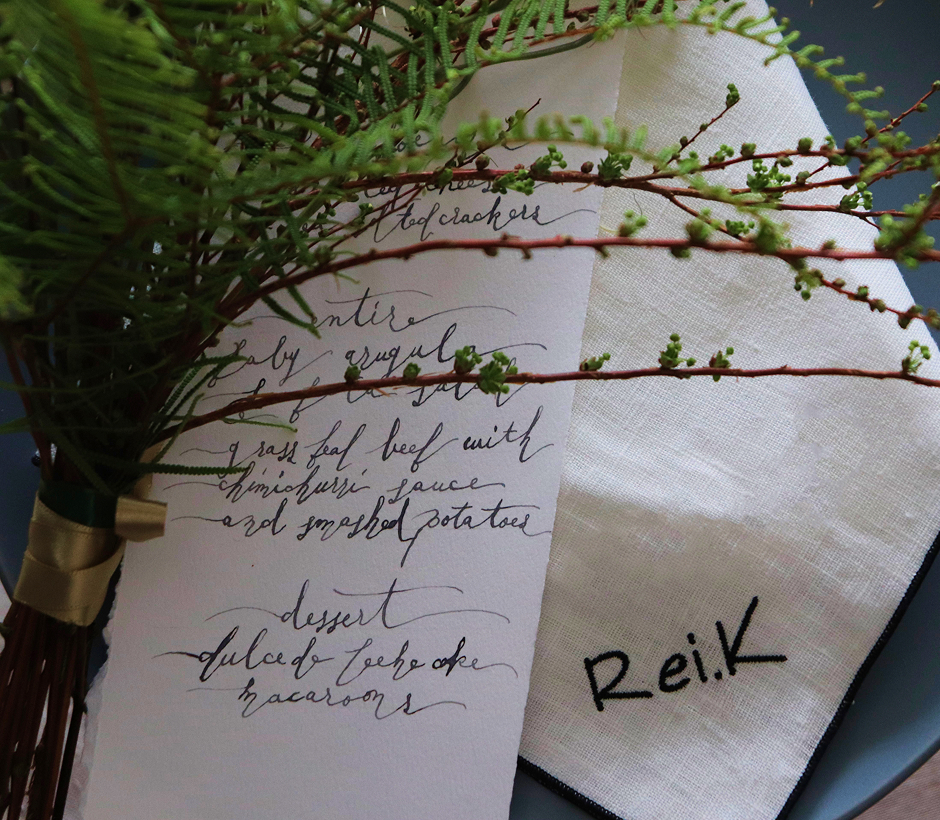 crackers
entire
baby arugula
feta salad
grass fed beef with
chimichurri sauce
and smashed potatoes
dessert
dulce de leche cake
macaroons
Rei.K